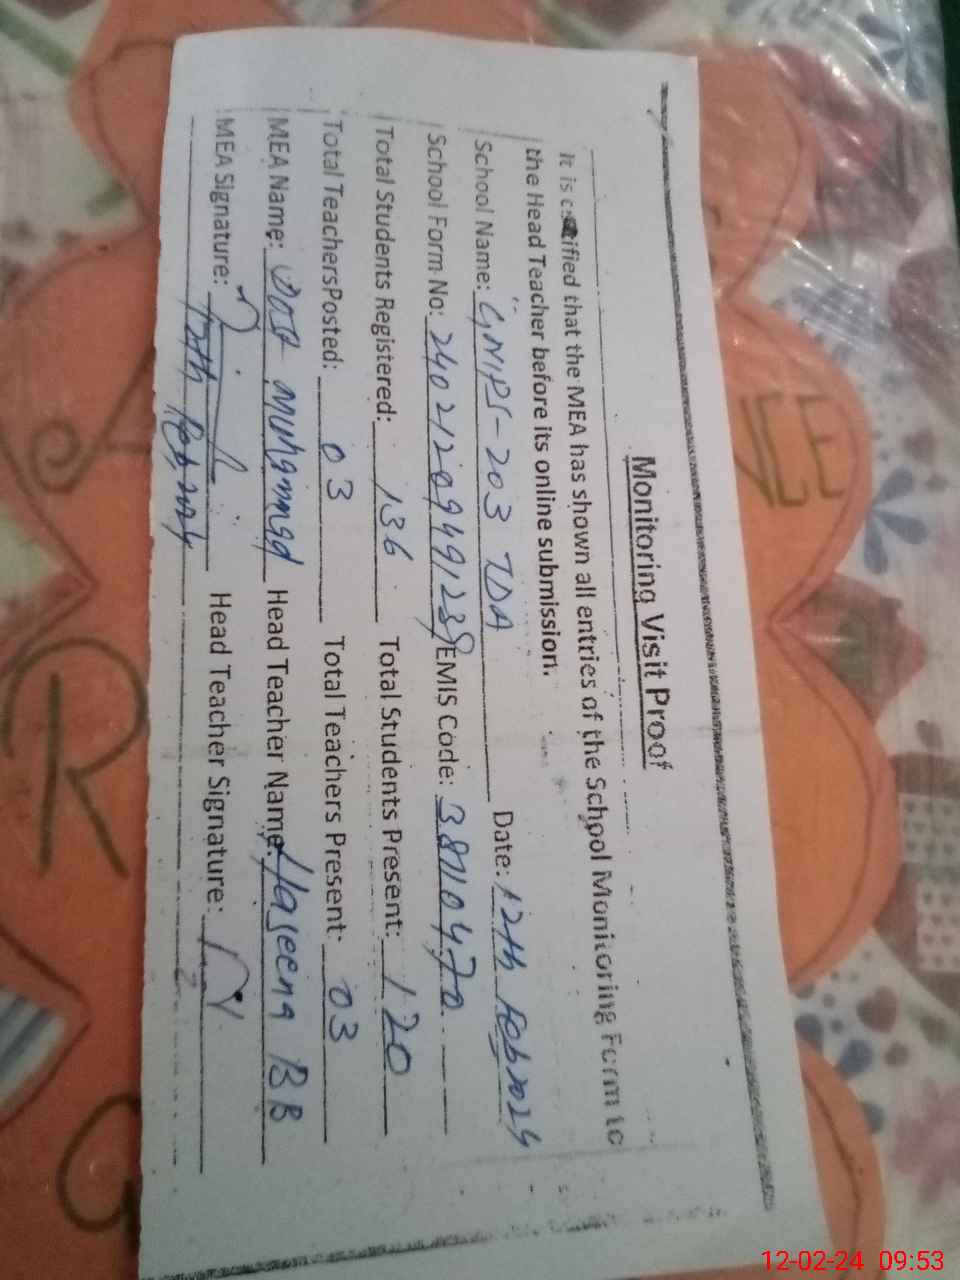 Monitoring Visit Proof
It is certified that the MEA has shown all entries of the School Monitoring Form to
the Head Teacher before its online submission.
School Name: GMPS-203 TDA Date: 12th Feb 2024
School Form No: EMIS Code: 38710470
Total Students Registered: 136 Total Students Present: 120
Total TeachersPosted: 03 Total Teachers Present: 03
MEA Name: Muhammad Head Teacher Name: Haseena BB
MEA Signature: Head Teacher Signature:
12th Feb 2024
E
R
G
12-02-24 09:53